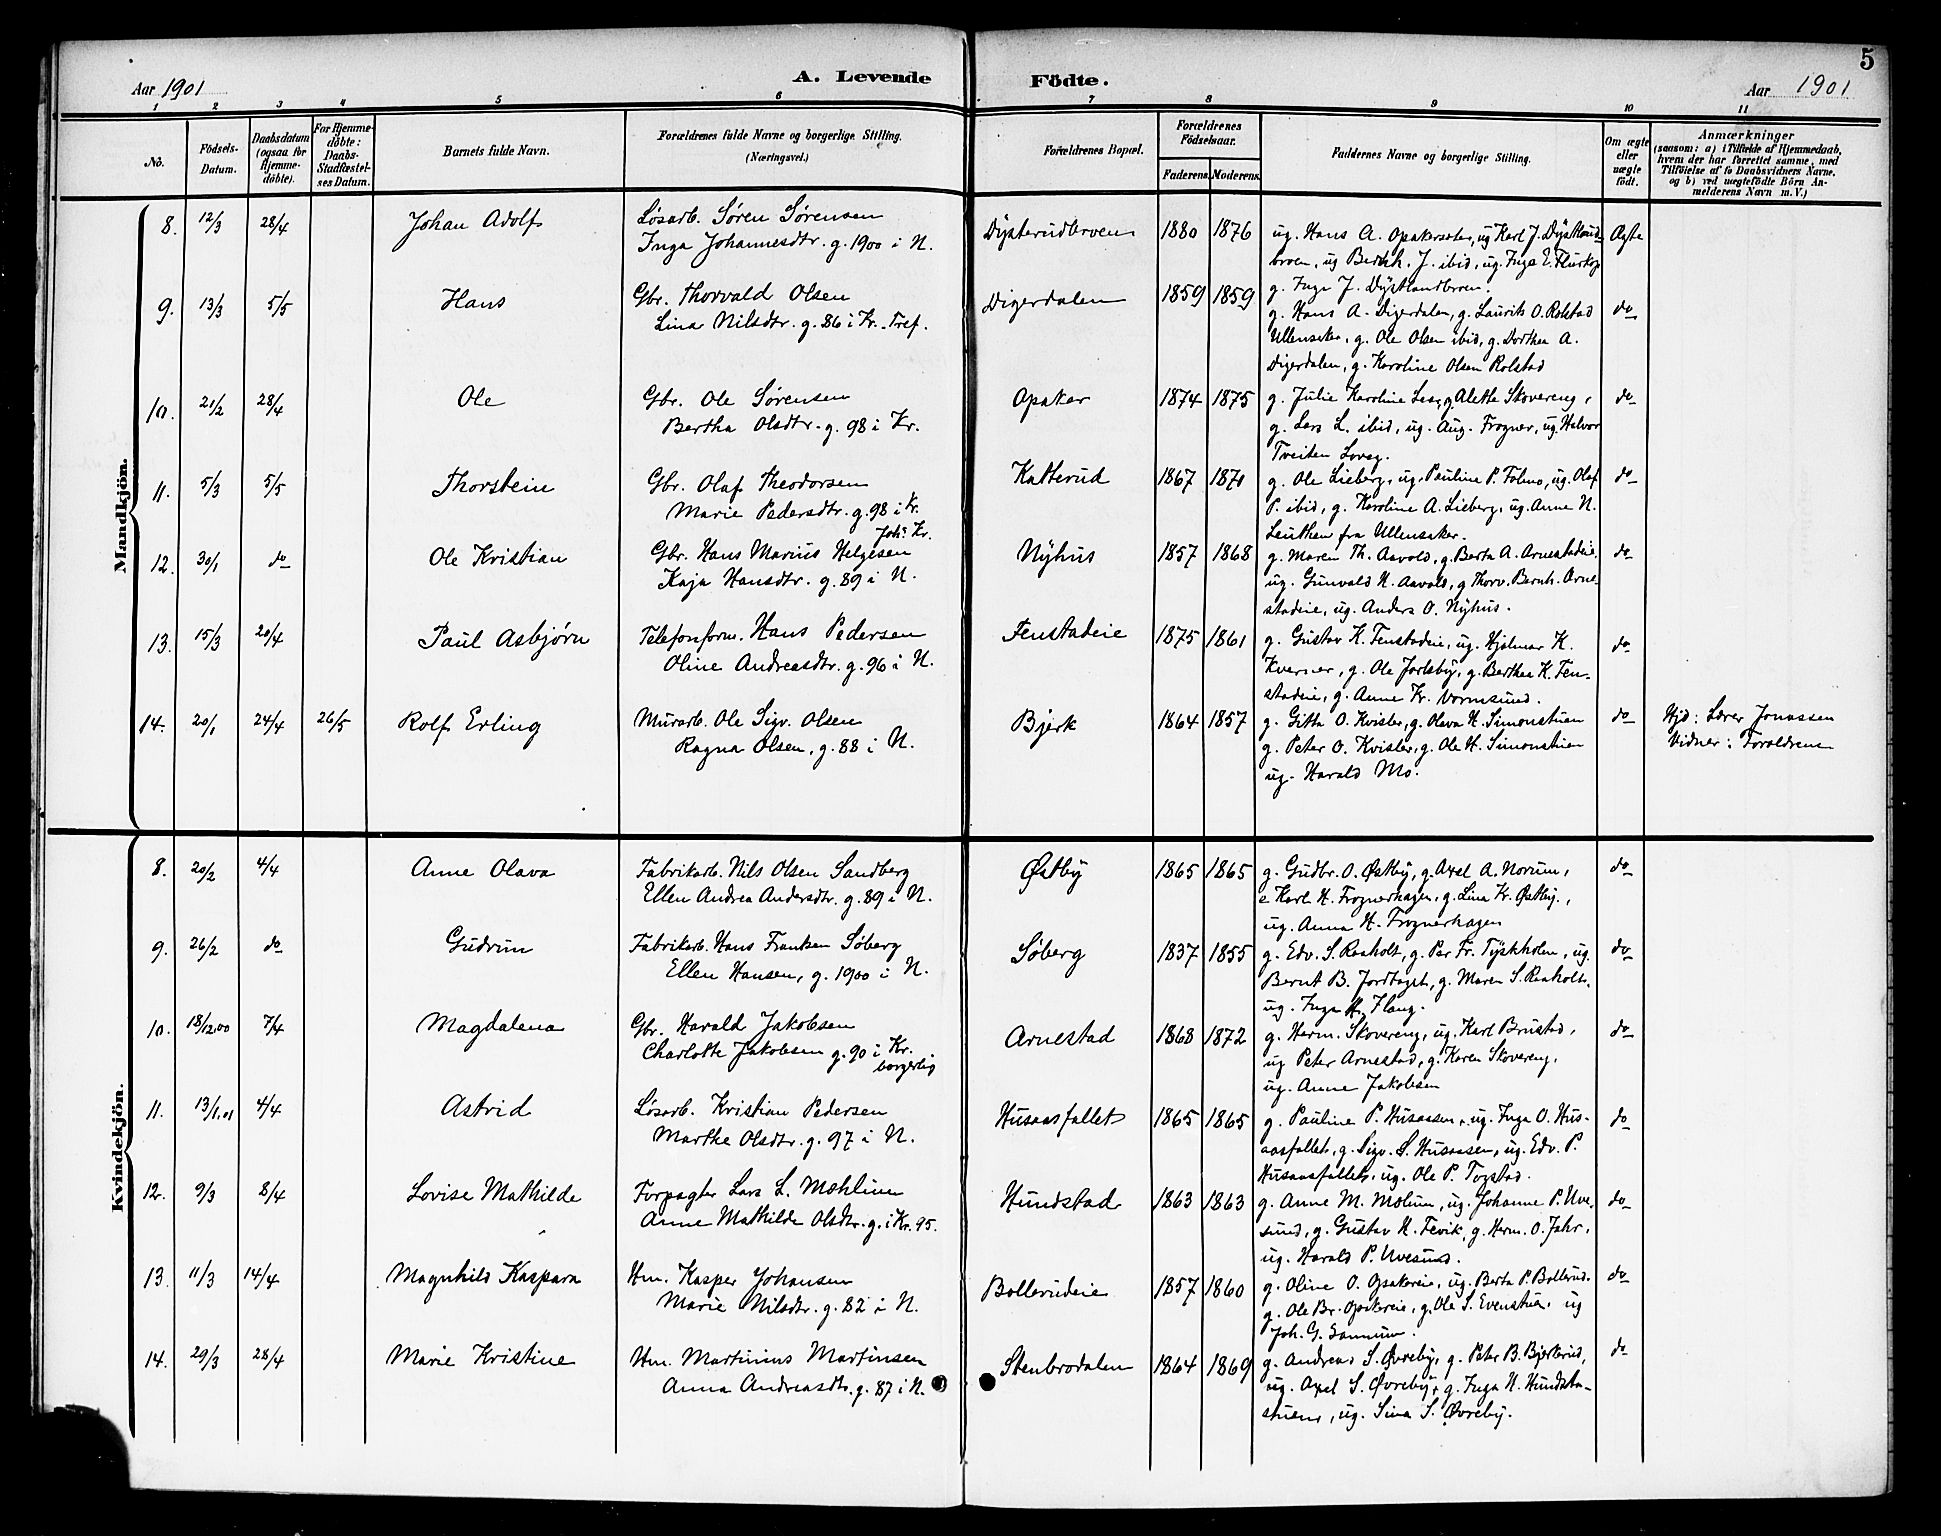 5
Aar 1901 A. Levende Födte. Aar 1901
1 2 3 4 5 6 7 8 9 10 11
No.
Födsels-Datum.
Daabsdatum (ogsaa for Hjemme-döbte).
For Hjemme-döbte: Daabs-Stadfæstel-ses Datum.
Barnets fulde Navn.
Forældrenes fulde Navne og borgerlige Stilling. (Næringsvei.)
Forældrenes Bopæl.
Forældrenes Födselsaar.
Faderens. Moderens.
Faddernes Navne og borgerlige Stilling.
Om ægte eller uægte födt.
Anmærkninger
(saasom: a) i Tilfælde af Hjemmedaab,
hvem der har forrettet samme, med
Tilföielse af to Daabsvidners Navne,
og b) ved uægtefödte Börn An-
melderens Navn m. V.)
Mandkjön.
8. 12/3 28/4 Johan Adolf Løsarb. Søren Sørensen Dysterudbroen 1880 1876 ug. Hans A. Opakersæter, ug Karl J. Dystlund- Ægte
Inga Johannesdtr. g. 1900 i N. broen, ug Bernh. J. ibid, ug. Inga E.
g. Inga J. Dystlandbroen.
9. 13/3 5/5 Hans Gbr. Thorvald Olsen Digerdalen 1859 1859 g. Hans A. Digerdalen, g. Laurits O. Rolstad do
Lina Nilsdtr. g. 86 i Kr. Tref. Ullensaker, g. Ole Olsen ibid, g. Dorthea A.
Digerdalen, g. Karoline Olsen Rolstad
10. 21/2 28/4 Ole Gbr. Ole Sørensen Opaker 1874 1875 g. Julie Karoline g. Alette Skovereng, do
Bertha Olsdtr. g. 98 i Kr. g. Lars L. ibid, ug. Aug. Frogner, ug. Halvor
Tveiten
11. 5/3 5/5 Thorstein Gbr. Olaf Theodorsen Katterud 1867 1871 g. Ole Lieberg, ug. Pauline P. ug. Olaf do
Marie Pedersdtr. g. 98 i Kr. P. ibid, g. Karoline A. Lieberg, ug. Anne N.
Joh: Kr. fra Ullensaker.
12. 30/1 do Ole Kristian Gbr. Hans Marius Helgesen Nyhus 1857 1868 g. Maren Th. Aavold, g. Berta A. Arnestadeie, do
Kaja Hansdtr. g. 89 i N. ug. Gunvald H. Aavold, g Thorv. Bernh. Arne-
stadeie, ug. Anders O. Nyhus.
13. 15/3 20/4 Paul Asbjørn Telefonform. Hans Pedersen Fenstadeie 1875 1861 g. Gustav K. Fenstadeie, ug. Hjalmar K. do
Oline Andreasdtr. g. 96 i N. Kverner, g. Ole Jarlsby, g. Berthea K. Fen-
stadeie, g. Anne Kr. Vormsund.
14. 20/1 24/4 26/5 Rolf Erling Murarb. Ole Sigv. Olsen Bjerk 1864 1857 g. Gitta O. Kvisler, g. Olava H. Simonstuen do Hjd: Lærer Jonassen
Ragna Olsen, g. 88 i N. g. Peter O. Kvisler, g. Ole H. Simonstuen Vidner: Forældrene
ug. Harald Mo.
Kvindekjön.
8. 20/2 4/4 Anne Olava Fabrikarb. Nils Olsen Sandberg Østby 1865 1865 g. Gudbr. O. Østby, g. Axel A. Norum, do
Ellen Andrea Andersdtr. g. 89 i N. e Karl H. Frognerhagen, g. Lina Kr. Østby,
ug. Anna H. Frognerhagen
9. 26/2 do Gudrun Fabrikarb. Hans Frantsen Søberg Søberg 1837 1855 g. Edv. S. Raaholt, g. Per Fr. Tyskholen, ug. do
Ellen Hansen, g. 1900 i N. Bernt B. g. Maren S. Raaholt,
ug. Inga H. Haug.
10. 18/12.00 7/4 Magdalena Gbr. Harald Jakobsen Arnestad 1868 1872 g. Herm. Skovereng, ug. Karl Brustad, do
Charlotte Jakobsen g. 90 i Kr. ug Peter Arnestad, g. Karen Skovereng,
borgerlig ug. Anne Jakobsen
11. 13/1.01 4/4 Astrid Løsarb. Kristian Pedersen Husaasfallet 1865 1865 g. Pauline P. Husaasen, ug. Inga O. Hus- do
Marthe Olsdtr. g. 97 i N. aasfallet, g. Sigv. S. Husaasen, ug. Edv. P.
Husaasfallet, ug. Ole P. Togstad.
12. 9/3 8/4 Lovise Mathilde Forpagter Lars L. Mæhlum Hundstad 1863 1863 g. Anne M. Mælum, ug. Johanne P. Uve- do
Anne Mathilde Olsdtr. g. i Kr. 95. sund, g. Gustav H. Fevik, g. Herm. O. Jahr,
ug. Harald P. Uvesund.
13. 11/3 14/4 Magnhild Kaspara Hm. Kasper Johansen Bollerudeie 1857 1860 g. Oline O. Opakereie, ug. Berta P. Bollerud. do
Marie Nilsdtr. g. 82 i N. g. Ole Br. Opakereie, g. Ole S. Evenstuen, ug
Joh. G. Sannum.
14. 29/3 28/4 Marie Kristine Hm. Martinius Martinsen Stenbrodalen 1864 1869 g. Andreas S. Øvreby, g. Peter B. Bjerterud, do
Anna Andreasdtr. g. 87 i N. ug. Axel S. Øvreby, g. Inga H. Hundsta-
stuen, ug. Lina S. Øvreby.